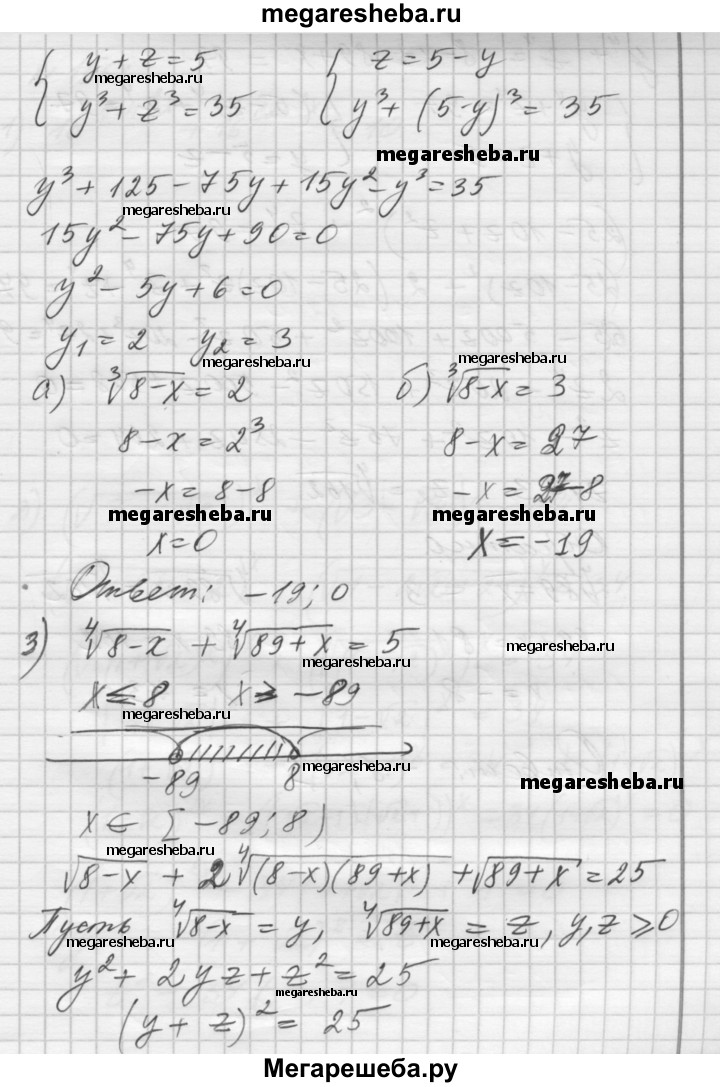 megaresheba.ru
{ y + z = 5
megaresheba.ru
y³ + z³ = 35
{ z = 5 - y
y³ + (5-y)³ = 35
megaresheba.ru
y³ + 125 - 75y + 15y² - y³ = 35
megaresheba.ru
15y² - 75y + 90 = 0
y² - 5y + 6 = 0
y₁ = 2 y₂ = 3
megaresheba.ru
megaresheba.ru
а) ∛(8-x) = 2
8 - x = 2³
-x = 8 - 8
megaresheba.ru
x = 0
б) ∛(8-x) = 3
8 - x = 27
-x = 27-8
megaresheba.ru
x = -19
Ответ: -19; 0
3) ∜(8-x) + ∜(89+x) = 5
megaresheba.ru
megaresheba.ru
x ≤ 8 x ≥ -89
megaresheba.ru
-89 8
megaresheba.ru
megaresheba.ru
x ∈ [-89; 8)
megaresheba.ru
√(8-x) + 2∜((8-x)(89+x)) + √(89+x) = 25
Пусть ∜(8-x) = y, ∜(89+x) = z, y,z ≥ 0
megaresheba.ru
megaresheba.ru
y² + 2yz + z² = 25
megaresheba.ru
(y + z)² = 25
Мегарешеба.ру